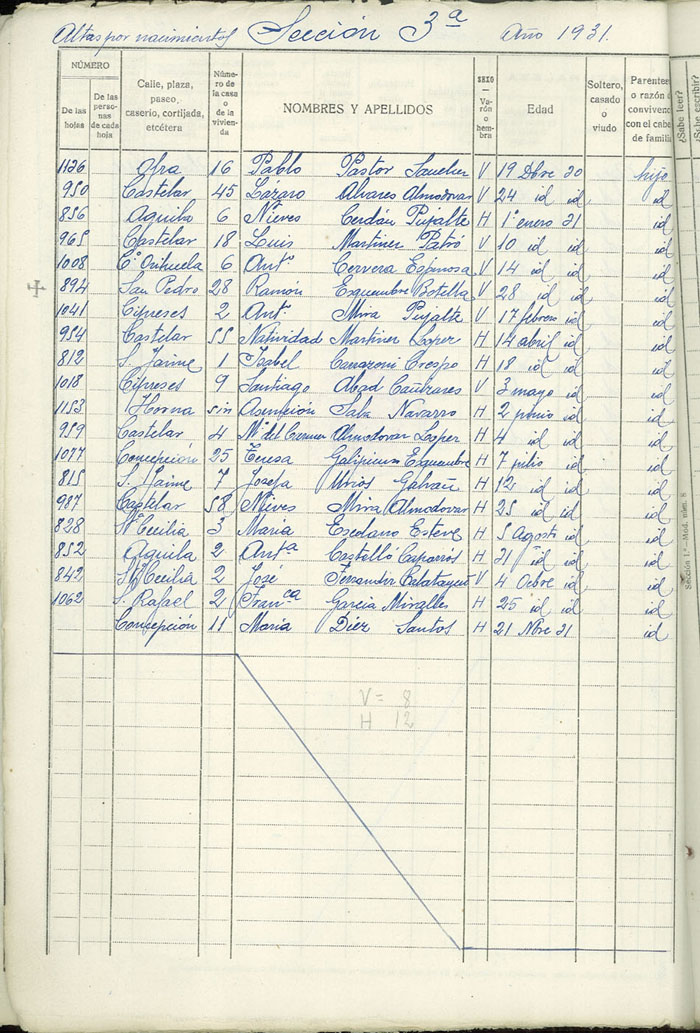 Altas por nacimientos Sección 3ª Año 1931.
NÚMERO
De las hojas
De las personas de cada hoja
Calle, plaza, paseo, caserio, cortijada, etcétera
Número de la casa o de la vivienda
NOMBRES Y APELLIDOS
SEXO — Varón o hembra
Edad
Soltero, casado o viudo
Parentes o razón d convivenc con el cabe de familia
¿Sabe leer?
¿Sabe escribir?
1126 16 Pablo Pastor Sanchez V 19 Dbre 30 hijo
950 Castelar 45 Lázaro Alvares Almodovar V 24 id id id
856 Aguila 6 Nieves Cerdán Pujalte H 1º enero 31 id
965 Castelar 18 Luis Martinez V 10 id id id
1008 Cº Orihuela 6 Antº Cervera Espinosa V 14 id id id
894 San Pedro 28 Ramón Esquembre Botella V 28 id id id
1041 Cipreses 2 Antº Mira Pujalte V 17 febrero id id
954 Castelar 55 Natividad Martinez Lopez H 14 abril id id
812 S. Jaime 1 Isabel Crespo H 18 id id id
1018 Cipreses 9 Santiago Abad Cañizares V 3 mayo id id
1153 Horna sin Asunción Sala Navarro H 2 junio id id
959 Castelar 4 Mª del Carmen Almodovar Lopez H 4 id id id
1077 Concepción 25 Teresa Esquembre H 7 julio id id
815 S. Jaime 7 Josefa Urios Galvañ H 12 id id id
987 Castelar 58 Nieves Mira Almodovar H 25 id id id
828 Sª Cecilia 3 Maria Escolano Esteve H 5 Agosto id id
852 Aguila 2 Antª Castelló Caparrós H 31 id id id
842 Stª Cecilia 2 José Fernandez Calatayud V 4 Ocbre id id
1062 S. Rafael 2 Franca Garcia Miralles H 25 id id id
Concepción 11 Maria Diez Santos H 21 Nbre 31 id
V = 8
H 12
Sección 1.ª—Mod. núm. 8